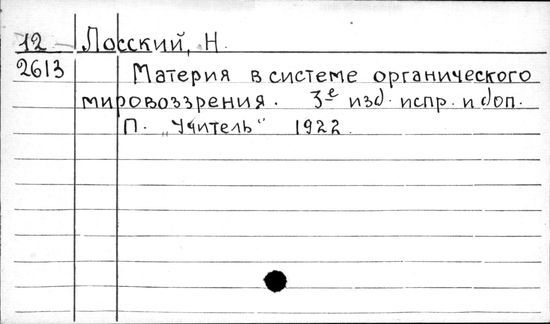 12 Лосский, Н.
2613 Материя в системе органического
мировоззрения. 3е изд. испр. и доп.
П. „Учитель" 1922.